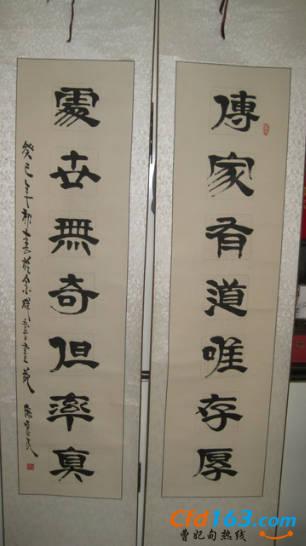 傳家有道唯存厚
處世無奇但率真
癸巳年
Cfd163.com
曹妃甸热线